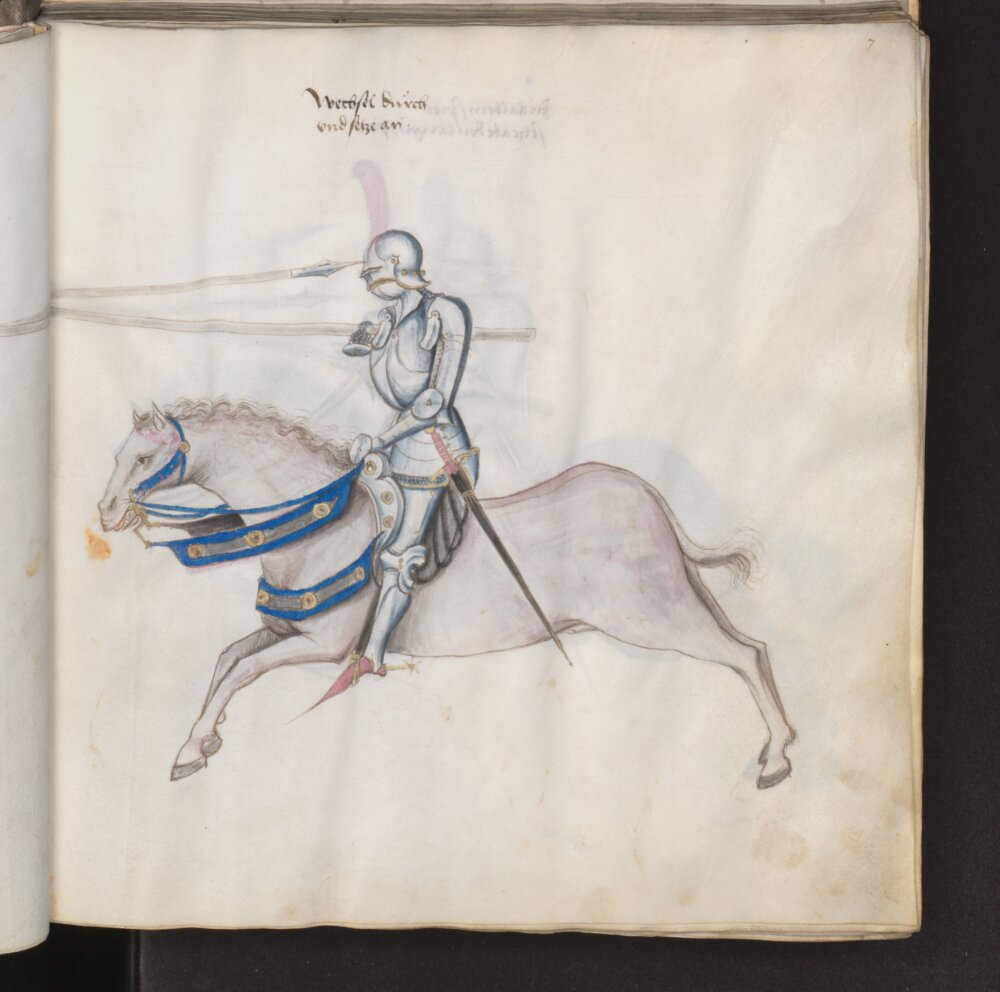 7
Wechsel durch
vnd setze an